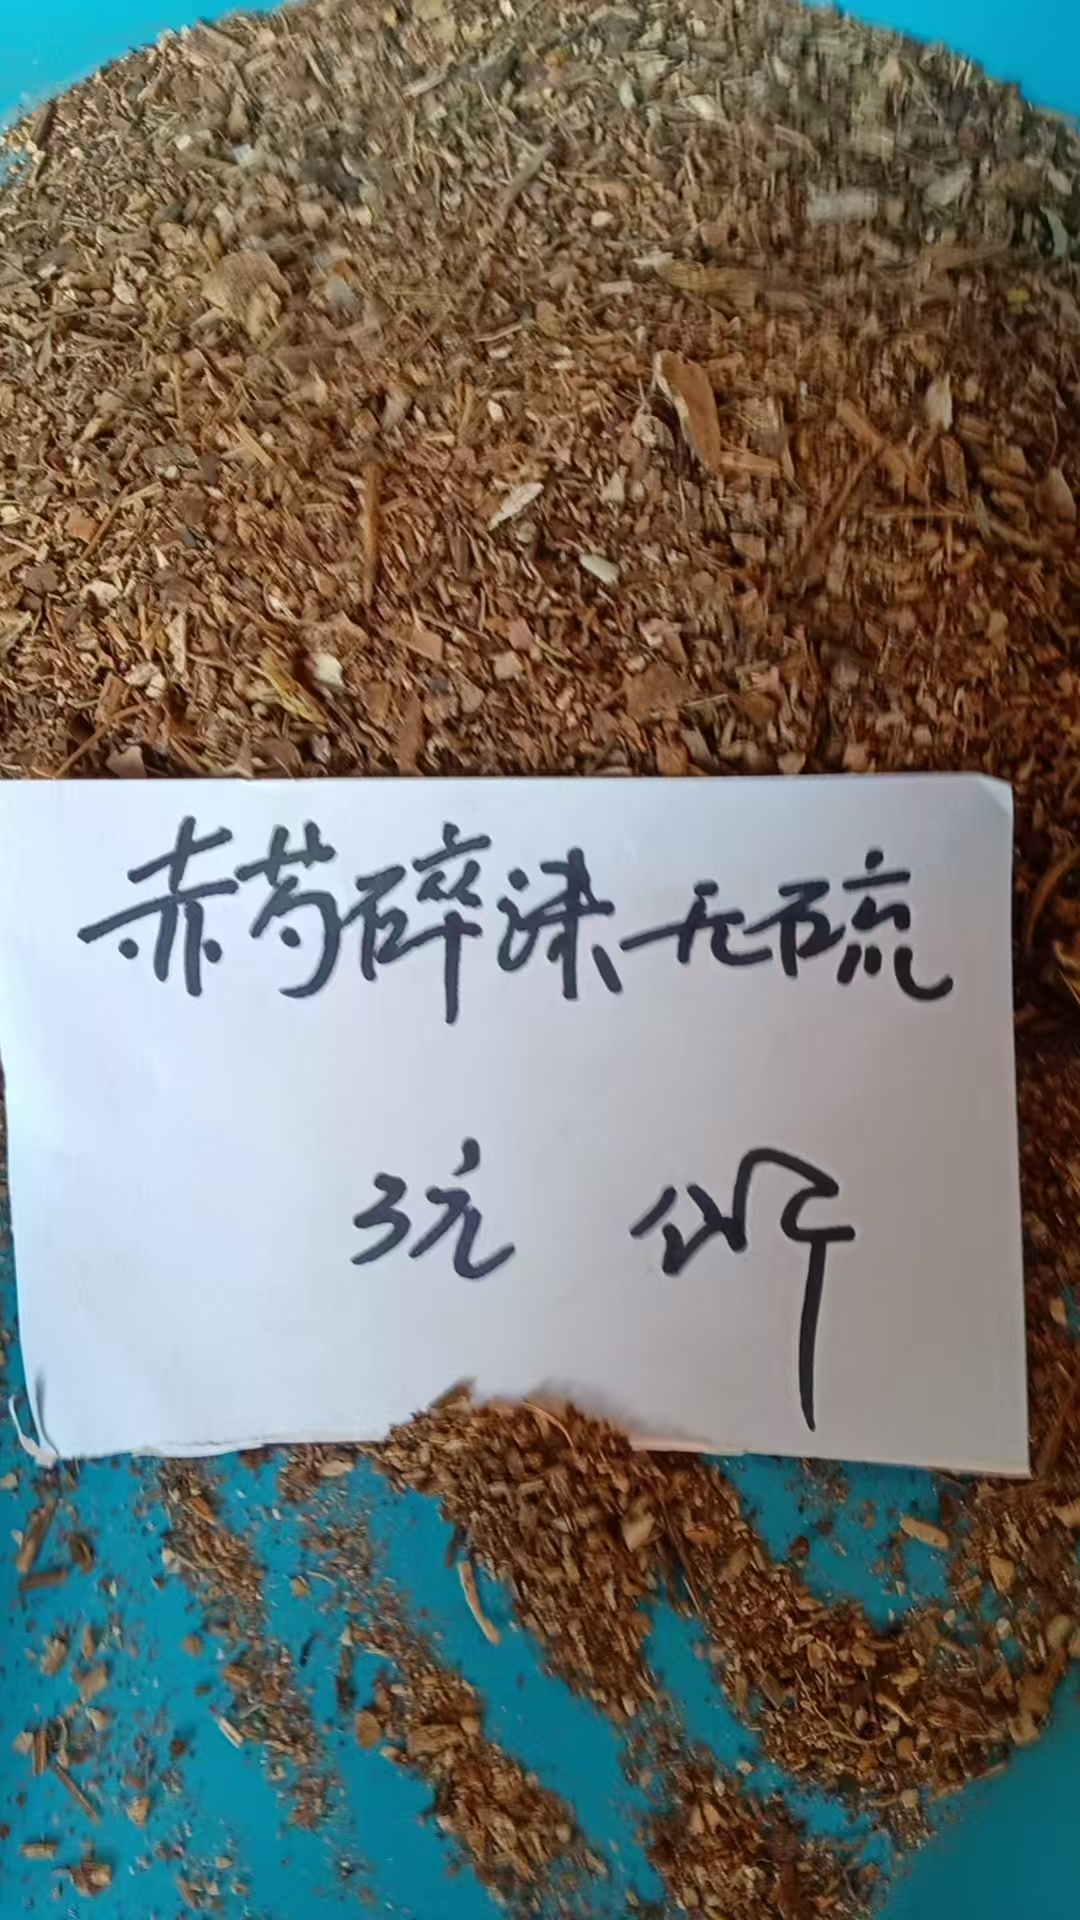 赤芍碎渣无硫
3元 公斤